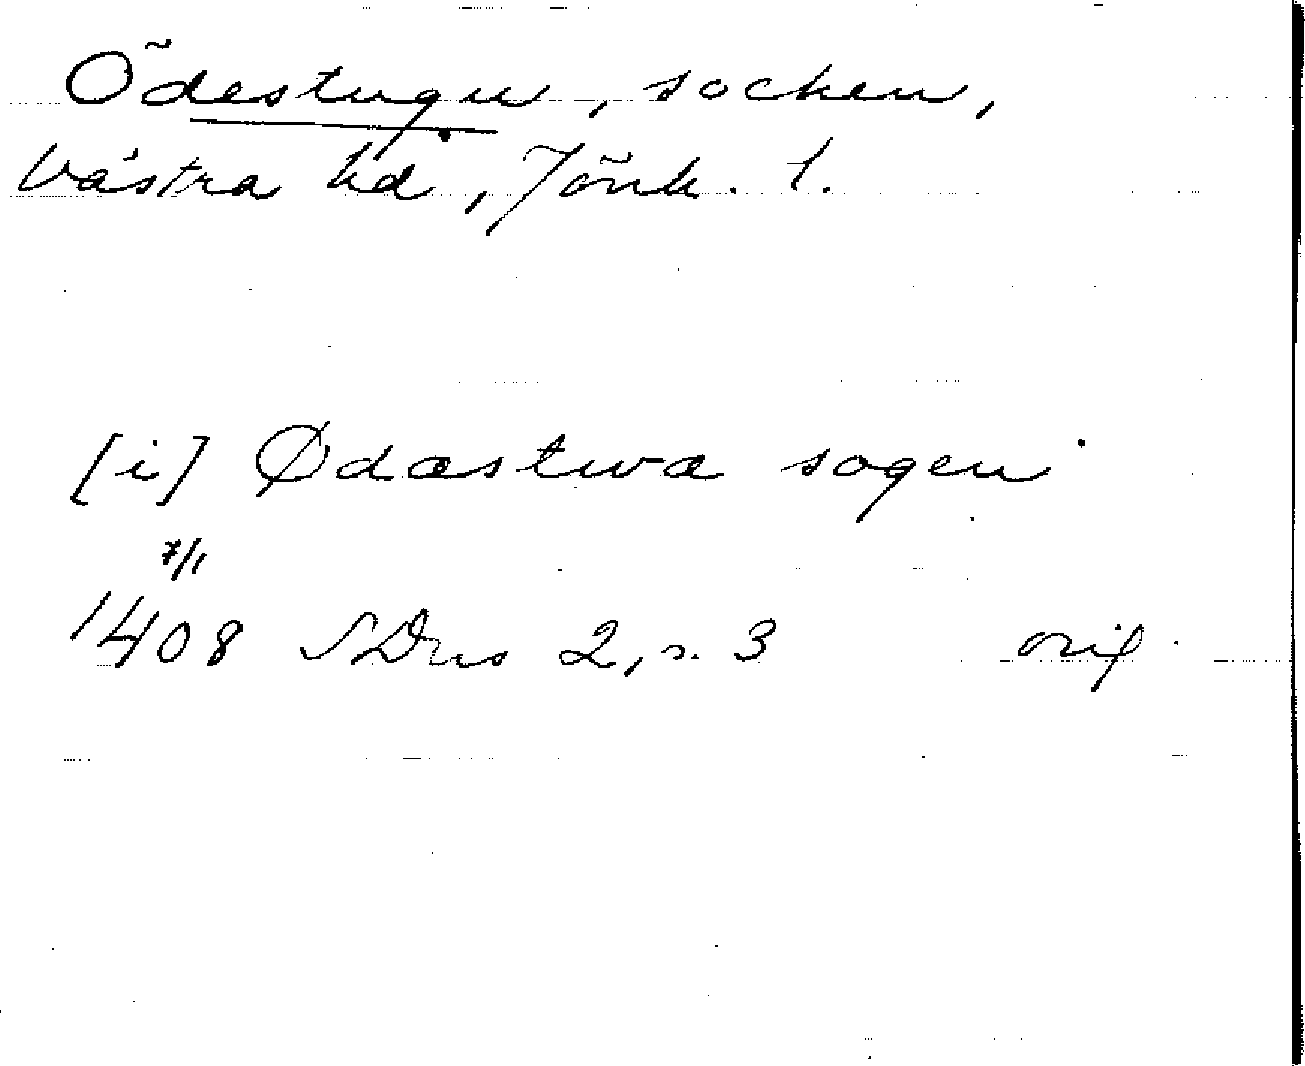 Ödestugu, socken,
Västra hd, Jönk. l.
[i] Ødæstwæ sogen
7/1
1408 SDns 2, s. 3 orig